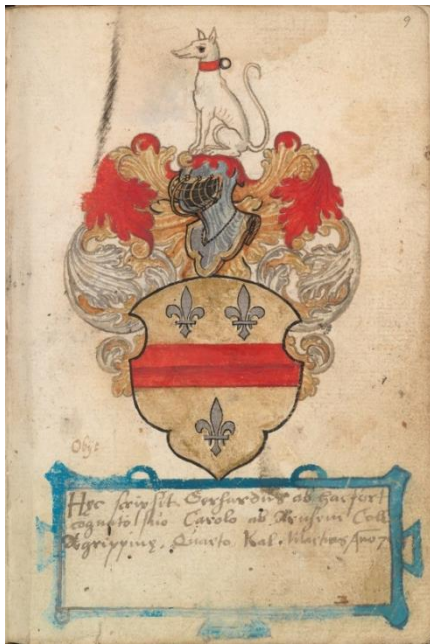 9
Obijt
Hęc scripsit Gerhardus ab Hacfort
cognato suo Carolo ab Arnhem Coll.
Agrippinę. Quarto Kal. Martias Ano 7